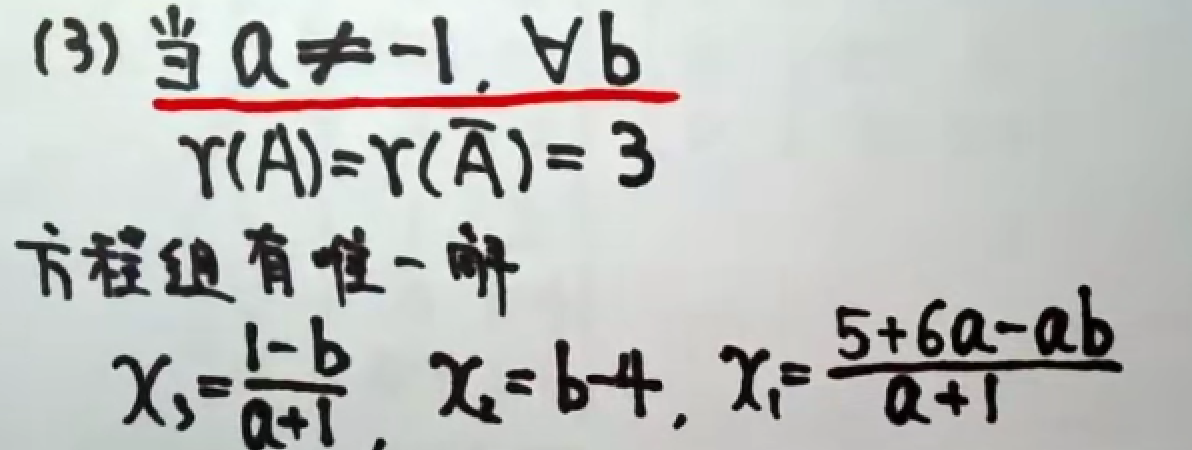 (3) 当 a ≠ -1, ∀b
r(A)=r(Ā)= 3
方程组有惟一解
x₃ = (1-b)/(a+1), x₂ = b-4, x₁ = (5+6a-ab)/(a+1)